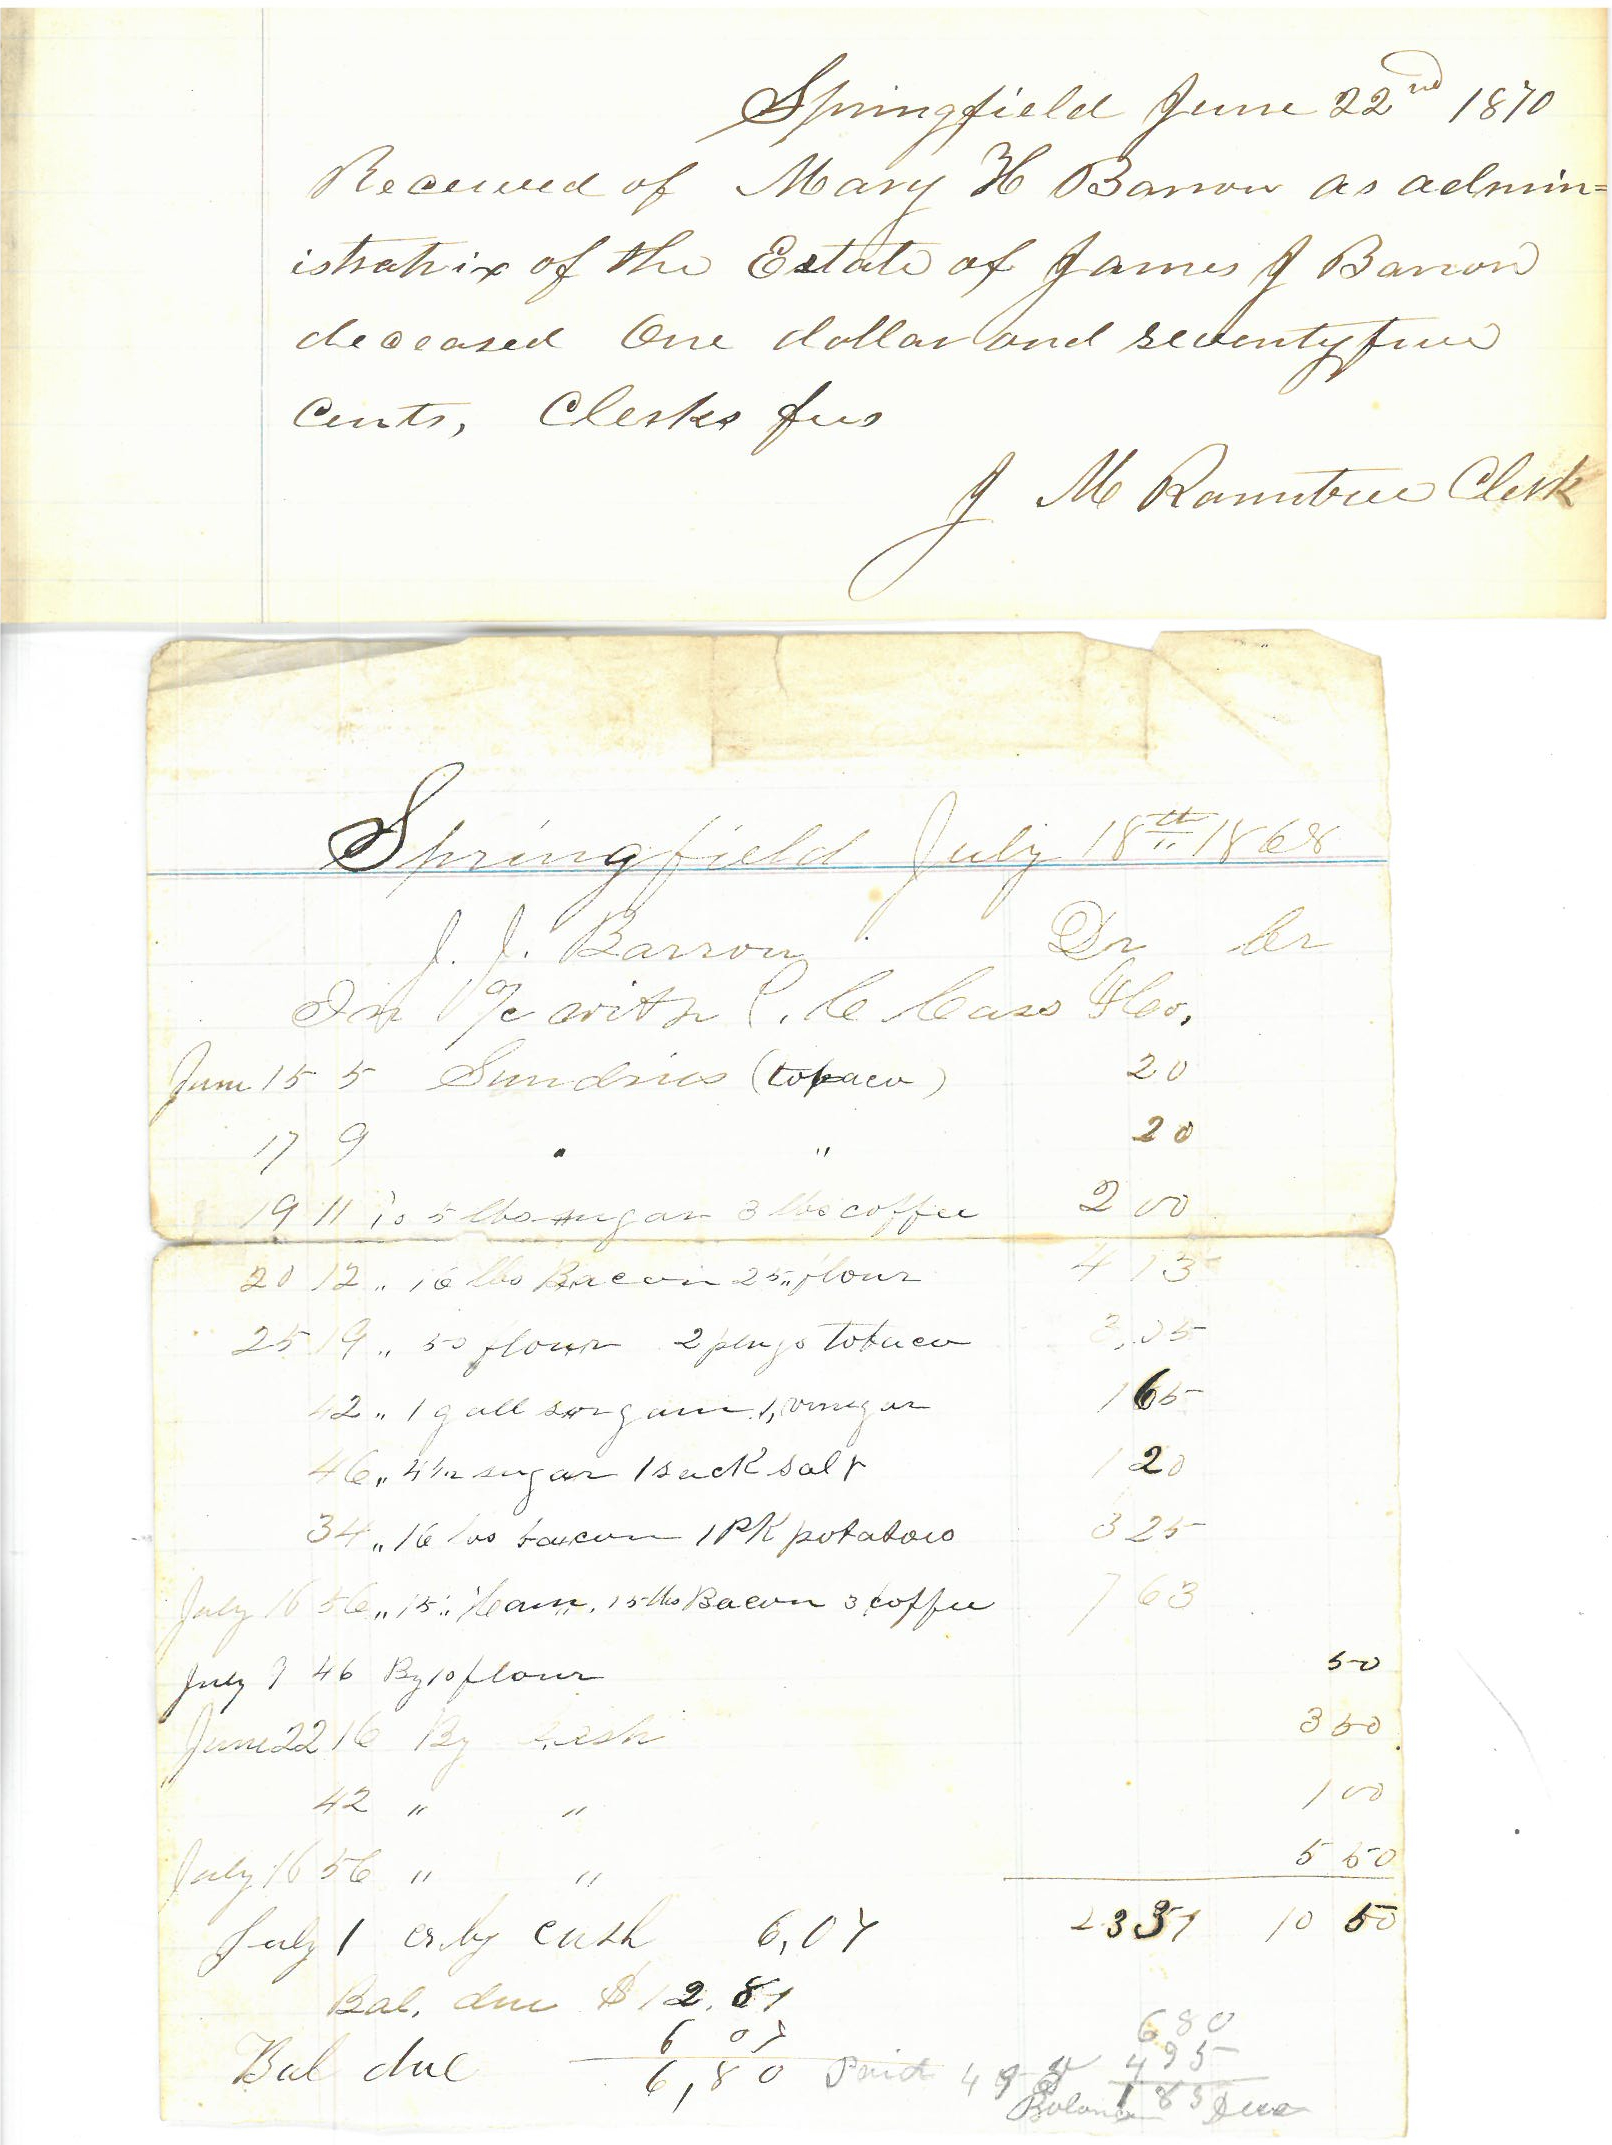 Springfield June 22nd 1870
Received of Mary H Barron as admin=
istratrix of the Estate of James J Barron
deceased One dollar and seventyfive
Cents, Clerks fees
J M Rountree Clerk
Springfield July 18th 1868
J. J. Barron Dr Cr
In a/c with C. Cass & Co.
June 15 5 Sundries (tobaco) 20
17 9 " " 20
19 11 To 5 lbs sugar 3 lbs coffee 2 00
20 12 " 16 lbs Bacon 25 " flour 4 13
25 19 " 50 flour 2 plugs tobaco 3,05
42 " 1 gall sorgam 1, vinegar 1 65
46 " 4 lbs sugar 1 sack salt 1 20
34 " 16 lbs bacon 1 PK potatoes 3 25
July 16 56 " 15 " ham, 15 lbs Bacon 3 coffee 7 63
July 7 46 By 10 flour 50
June 22 16 By Cash 3 50
42 " " 1 00
July 16 56 " " 5 50
23 31 10 50
July 1 cr. by cash 6,01
Bal. due $12.81
6 01
Bal due 6,80 Paid 4 95
6 80
4 95
Balance 1 85 Due